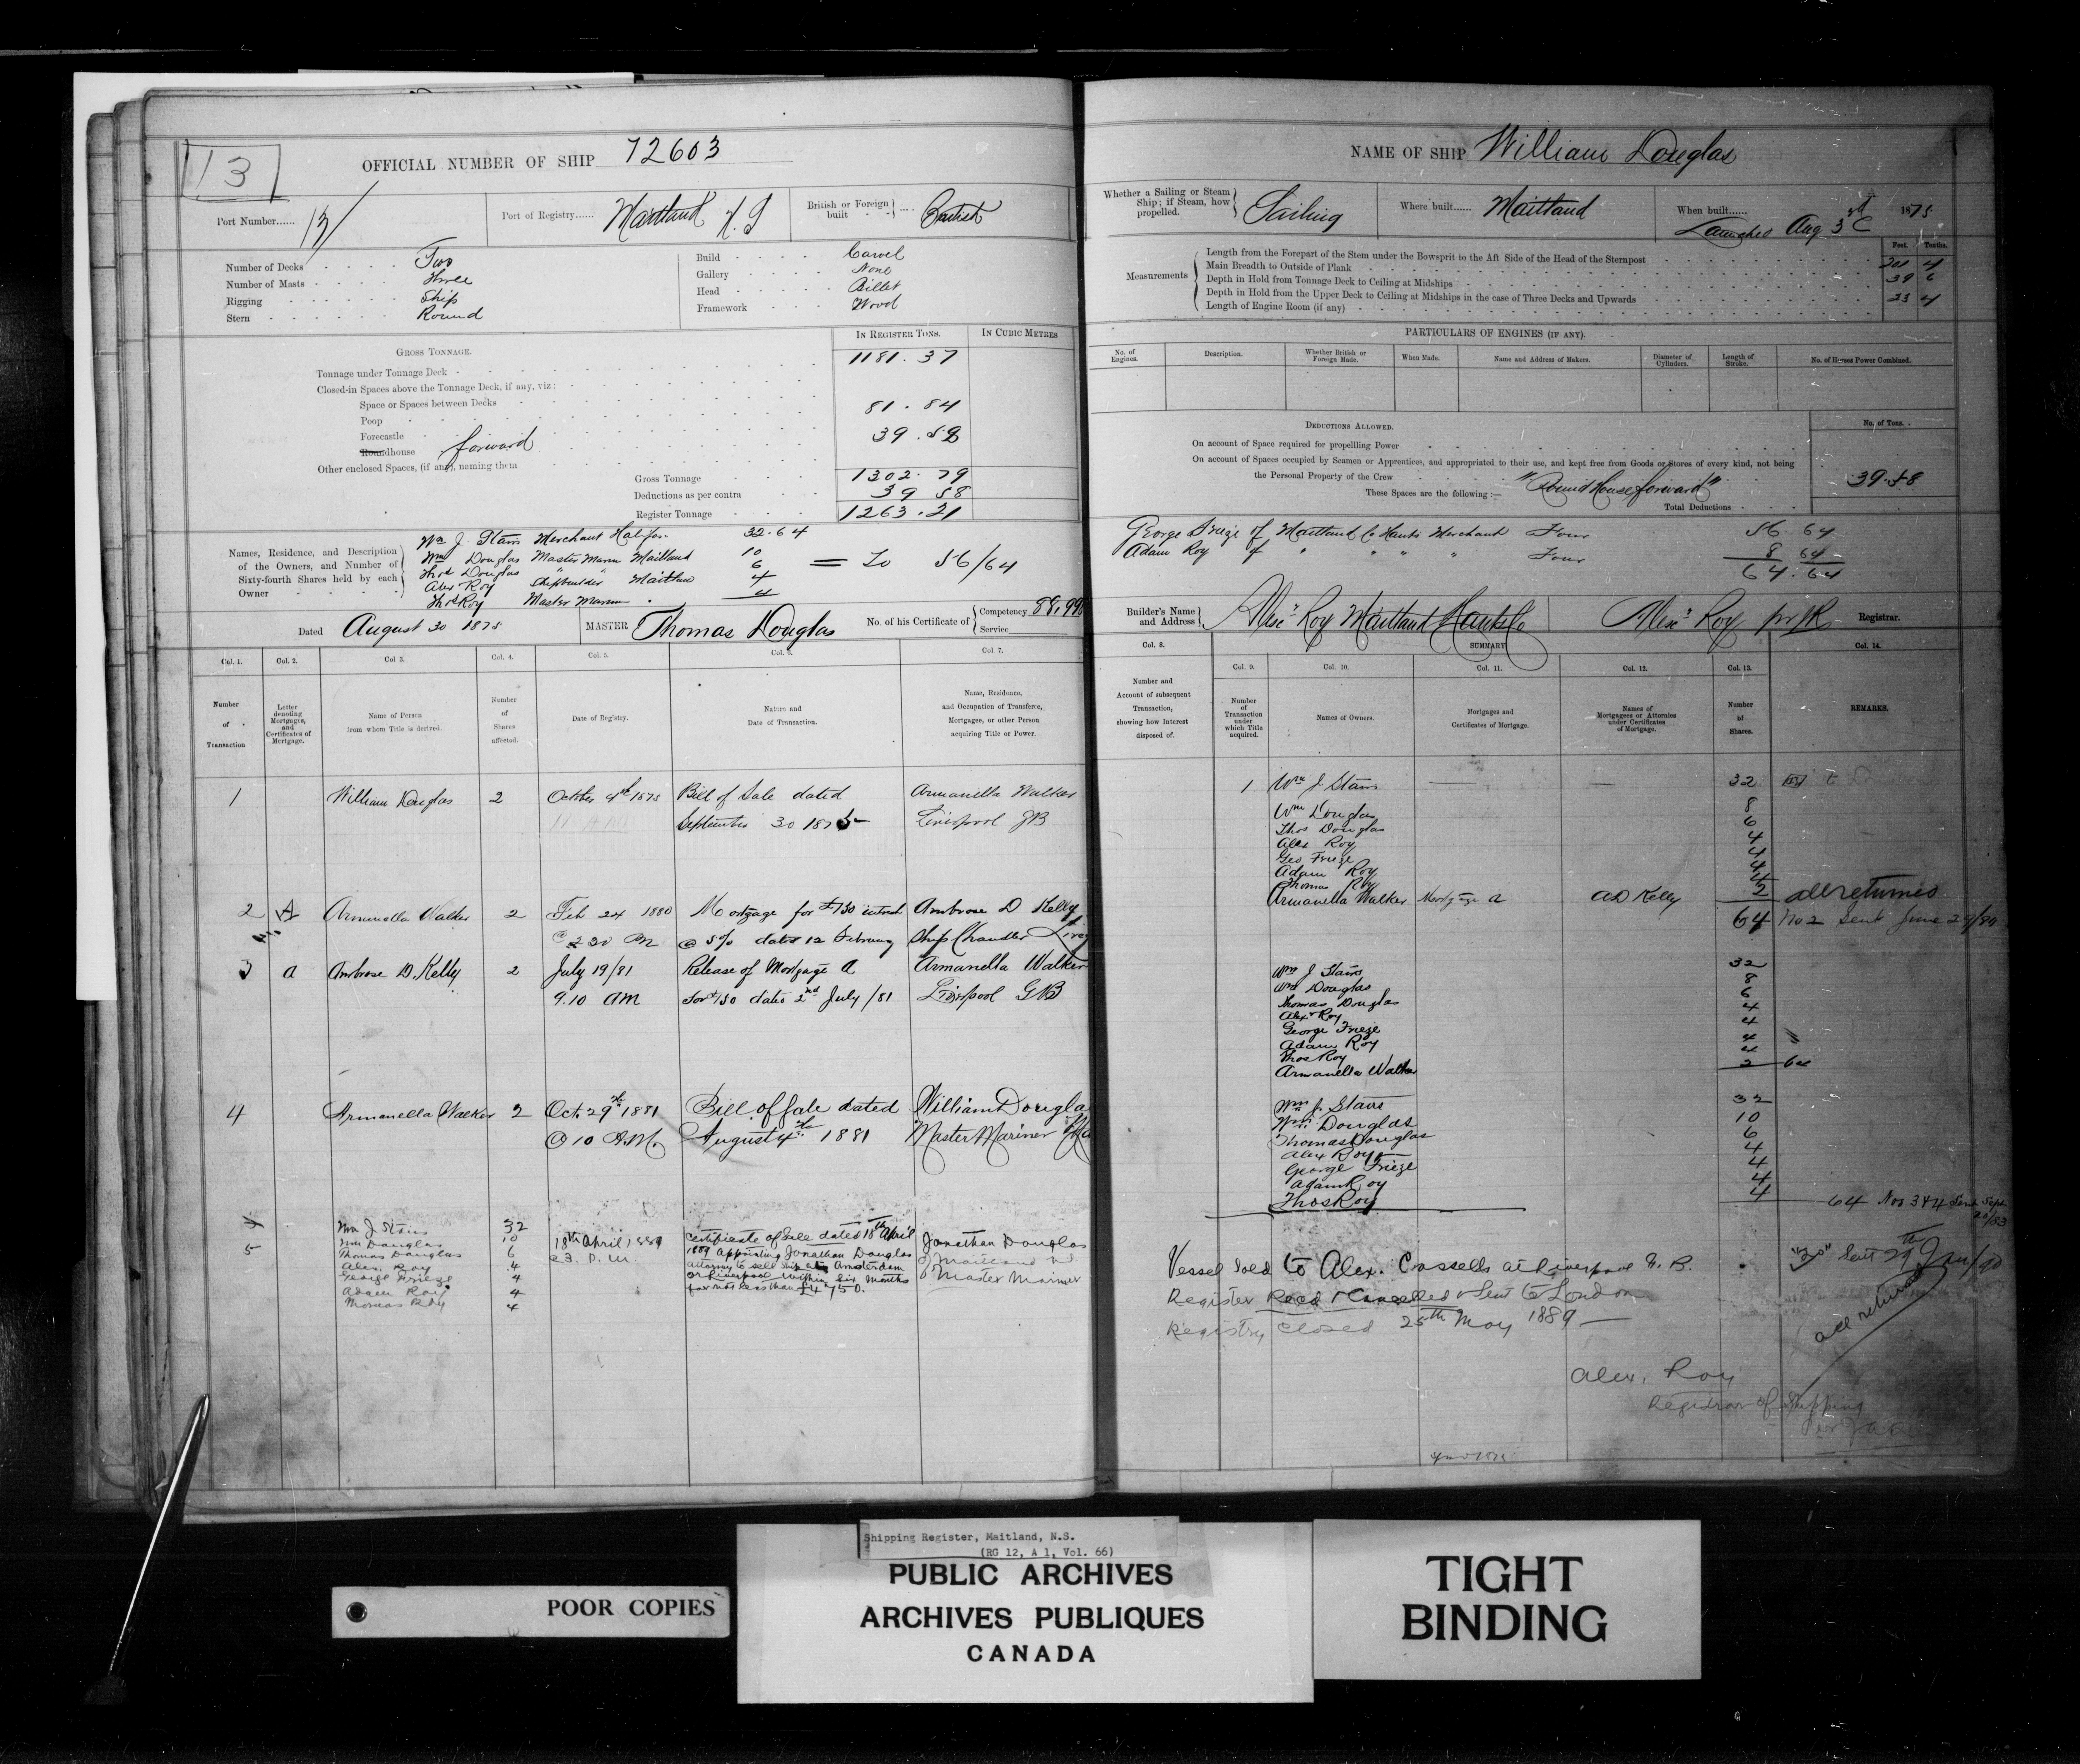 13
OFFICIAL NUMBER OF SHIP 72603
Port Number...... 13/
Port of Registry...... Maitland N.S
British or Foreign built British
Number of Decks Two
Number of Masts Three
Rigging Ship
Stern Round
Build Carvel
Gallery None
Head Billet
Framework Wood
GROSS TONNAGE.
IN REGISTER TONS.
IN CUBIC METRES
Tonnage under Tonnage Deck 1181.37
Closed-in Spaces above the Tonnage Deck, if any, viz:
Space or Spaces between Decks
Poop 81.84
Forecastle
Roundhouse forward 39.58
Other enclosed Spaces, (if any), naming them
Gross Tonnage 1302.79
Deductions as per contra 39 58
Register Tonnage 1263.21
Names, Residence, and Description of the Owners, and Number of Sixty-fourth Shares held by each Owner
Wm J. Stairs Merchant Halifax 32.64
Wm Douglas Master Marin Maitland 10
Thos Douglas " " 6
Alex Roy Shipbuilder Maitlan 4
Thos Roy Master Marin " 4
= To 56/64
Dated August 30 1875
MASTER Thomas Douglas
No. of his Certificate of { Competency Service
Col. 1. Col. 2. Col 3. Col. 4. Col. 5. Col. 6. Col. 7.
Number of Transaction
Letter denoting Mortgages, and Certificates of Mortgage.
Name of Person from whom Title is derived.
Number of Shares affected.
Date of Registry.
Nature and Date of Transaction.
Name, Residence, and Occupation of Transferee, Mortgagee, or other Person acquiring Title or Power.
1 William Douglas 2 October 4th 1875 Bill of Sale dated Armanella Walker
September 30 1875 Liverpool GB
2 A Armanella Walker 2 Feb 24 1880 Mortgage for £130 intrest Ambrose D Kelly
@ 2 30 PM @ 5% dated 12 February Ship Chandler
3 a Ambrose D. Kelly 2 July 19/81 Release of Mortgage A Armanella Walker
9.10 AM for £130 dated 2nd July /81 Liverpool GB
4 Armanella Walker 2 Oct. 29th 1881 Bill of Sale dated William Dougla
@ 10 A.M. August 4th 1881 Master Mariner
5
Wm J Stairs 32
Wm Douglas 10
Thomas Douglas 6
Alex. Roy 4
George Frieze 4
Adam Roy 4
Thomas Roy 4
18th April 1889
Certificate of Sale dated 18th April
1889 appointing Jonathan Douglas
attorney to sell Ship at Amsterdam
or Liverpool within six months
for not less than £4750.
Jonathan Douglas
of Maitland N.S
Master Mariner
NAME OF SHIP William Douglas
Whether a Sailing or Steam Ship; if Steam, how propelled. Sailing
Where built...... Maitland
When built...... 1875
Launched Aug 3rd
Feet. Tenths.
Measurements
Length from the Forepart of the Stem under the Bowsprit to the Aft Side of the Head of the Sternpost 201 4
Main Breadth to Outside of Plank 39 6
Depth in Hold from Tonnage Deck to Ceiling at Midships 23 4
Depth in Hold from the Upper Deck to Ceiling at Midships in the case of Three Decks and Upwards
Length of Engine Room (if any)
PARTICULARS OF ENGINES (IF ANY).
No. of Engines.
Description.
Whether British or Foreign Made.
When Made.
Name and Address of Makers.
Diameter of Cylinders.
Length of Stroke.
No. of Horses Power Combined.
DEDUCTIONS ALLOWED.
No. of Tons.
On account of Space required for propelling Power
On account of Spaces occupied by Seamen or Apprentices, and appropriated to their use, and kept free from Goods or Stores of every kind, not being
the Personal Property of the Crew 39.58
These Spaces are the following :— "Round House forward"
Total Deductions
George Frieze of Maitland Co Hants Merchant Four 56.64
Adam Roy of " " " " Four 8 64
64.64
Builder's Name and Address Alexr Roy Maitland Hants Co
Alexr Roy pr JR Registrar.
Col. 8.
SUMMARY
Col. 9. Col. 10. Col. 11. Col. 12. Col. 13. Col. 14.
Number and Account of subsequent Transaction, showing how Interest disposed of.
Number of Transaction under which Title acquired.
Names of Owners.
Mortgages and Certificates of Mortgage.
Names of Mortgagees or Attornies under Certificates of Mortgage.
Number of Shares.
REMARKS.
1 Wm J Stairs 32
Wm Douglas 8
Thos Douglas 6
Alex Roy 4
Geo Frieze 4
Adam Roy 4
Thomas Roy 4
Armanella Walker Mortgage a AD Kelly 2 all returned
64 No 2 Sent June 29/80
Wm J Stairs 32
Wm Douglas 8
Thomas Douglas 6
Alexr Roy 4
George Frieze 4
Adam Roy 4
Thos Roy 4
Armanella Walker 2 64
Wm J. Stairs 32
Wm Douglas 10
Thomas Douglas 6
Alex Roy 4
George Frieze 4
Adam Roy 4
Thos Roy 4
64 Nos 3&4 Sent Sept
Vessel Sold to Alex. Cassells at Liverpool G. B.
Register Recd & Cancelled & Sent to London
Registry closed 25th May 1889 —
Sent 29th Jan/90
all returned
Alex. Roy
Registrar of Shipping
Shipping Register, Maitland, N.S.
(RG 12, A 1, Vol. 66)
POOR COPIES
PUBLIC ARCHIVES
ARCHIVES PUBLIQUES
CANADA
TIGHT
BINDING